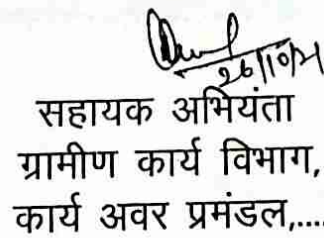 26/10/21
सहायक अभियंता
ग्रामीण कार्य विभाग,
कार्य अवर प्रमंडल,....